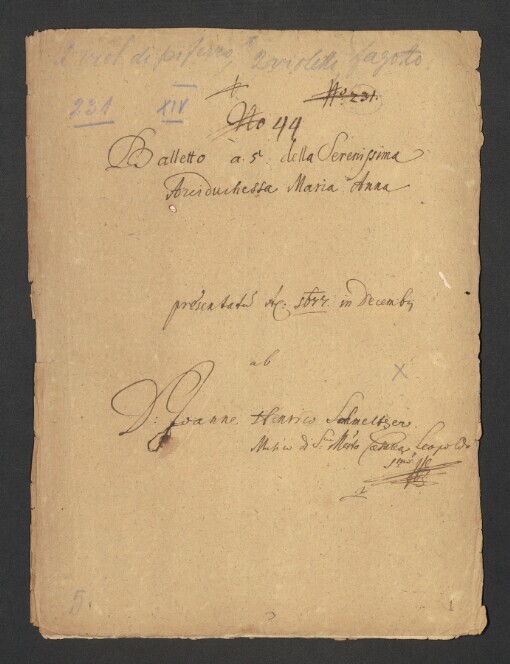 2 viol. di piferro, 2 violette fagotto.
231 XIV No 231.
No 44
Balletto à 5. della Serenissima
Arciduchessa Maria Anna
præsentatū Aº: 1677. in Decembr
ab
X
D: Joanne Henrico Schmeltzer
Musico di Sᵃ Mtà Cesarea Leopoldo
5
1